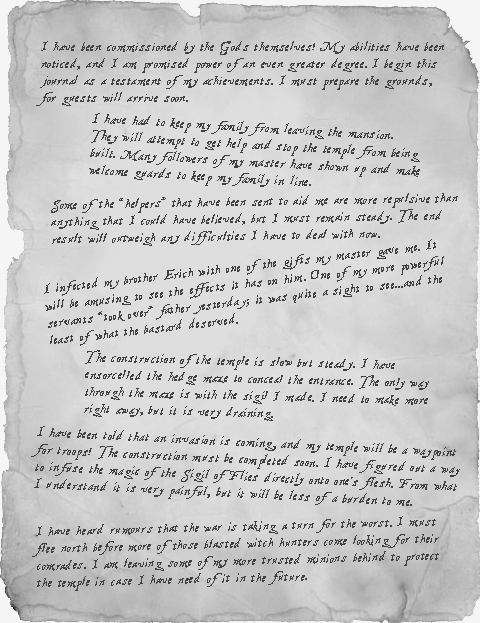 I have been commissioned by the Gods themselves! My abilities have been
noticed, and I am promised power of an even greater degree. I begin this
journal as a testament of my achievements. I must prepare the grounds,
for guests will arrive soon.
I have had to keep my family from leaving the mansion.
They will attempt to get help and stop the temple from being
built. Many followers of my master have shown up and make
welcome guards to keep my family in line.
Some of the "helpers" that have been sent to aid me are more repulsive than
anything that I could have believed, but I must remain steady. The end
result will outweigh any difficulties I have to deal with now.
I infected my brother Erich with one of the gifts my master gave me. It
will be amusing to see the effects it has on him. One of my more powerful
servants "took over" father yesterday; it was quite a sight to see...and the
least of what the bastard deserved.
The construction of the temple is slow but steady. I have
ensorcelled the hedge maze to conceal the entrance. The only way
through the maze is with the sigil I made. I need to make more
right away, but it is very draining.
I have been told that an invasion is coming, and my temple will be a waypoint
for troops! The construction must be completed soon. I have figured out a way
to infuse the magic of the Sigil of Flies directly onto one's flesh. From what
I understand it is very painful, but it will be less of a burden to me.
I have heard rumours that the war is taking a turn for the worst. I must
flee north before more of those blasted witch hunters come looking for their
comrades. I am leaving some of my more trusted minions behind to protect
the temple in case I have need of it in the future.